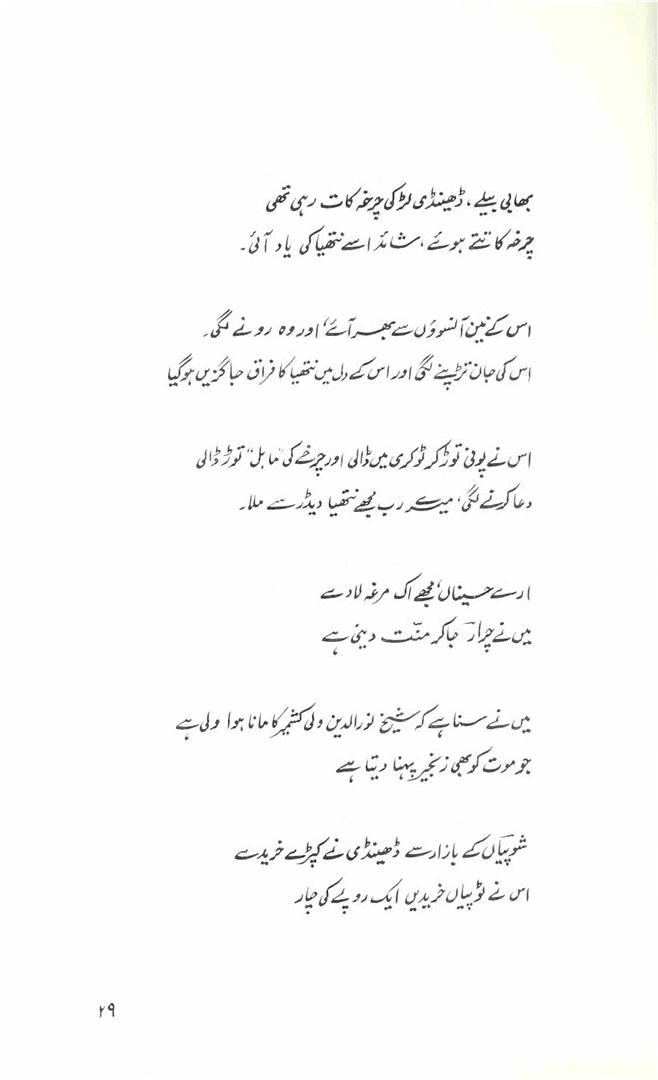 بھابی بیلے، ڈھینڈی لڑکی چرخہ کات رہی تھی
چرخہ کاتتے ہوئے، شائد اسے نتھیا کی یاد آئی۔
اس کے نین آنسوؤں سے بھر آئے، اور وہ رونے لگی۔
اس کی جان تڑپنے لگی اور اس کے دل میں نتھیا کا فراق جاگزیں ہوگیا
اس نے پونی توڑ کر ٹوکری میں ڈالی اور چرخے کی "ماہل" توڑ ڈالی
دعا کرنے لگی، میرے رب مجھے نتھیا دیڈر سے ملا۔
ارے حسیناں، مجھے اک مرغہ لادے
میں نے چرار جاکر منّت دینی ہے
میں نے سنا ہے کہ شیخ نورالدین ولی کشمیر کا مانا ہوا ولی ہے
جو موت کو بھی زنجیر پہنا دیتا ہے
شوپیّاں کے بازار سے ڈھینڈی نے کپڑے خریدے
اس نے ٹوپیاں خریدیں ایک روپے کی چار
۲۹